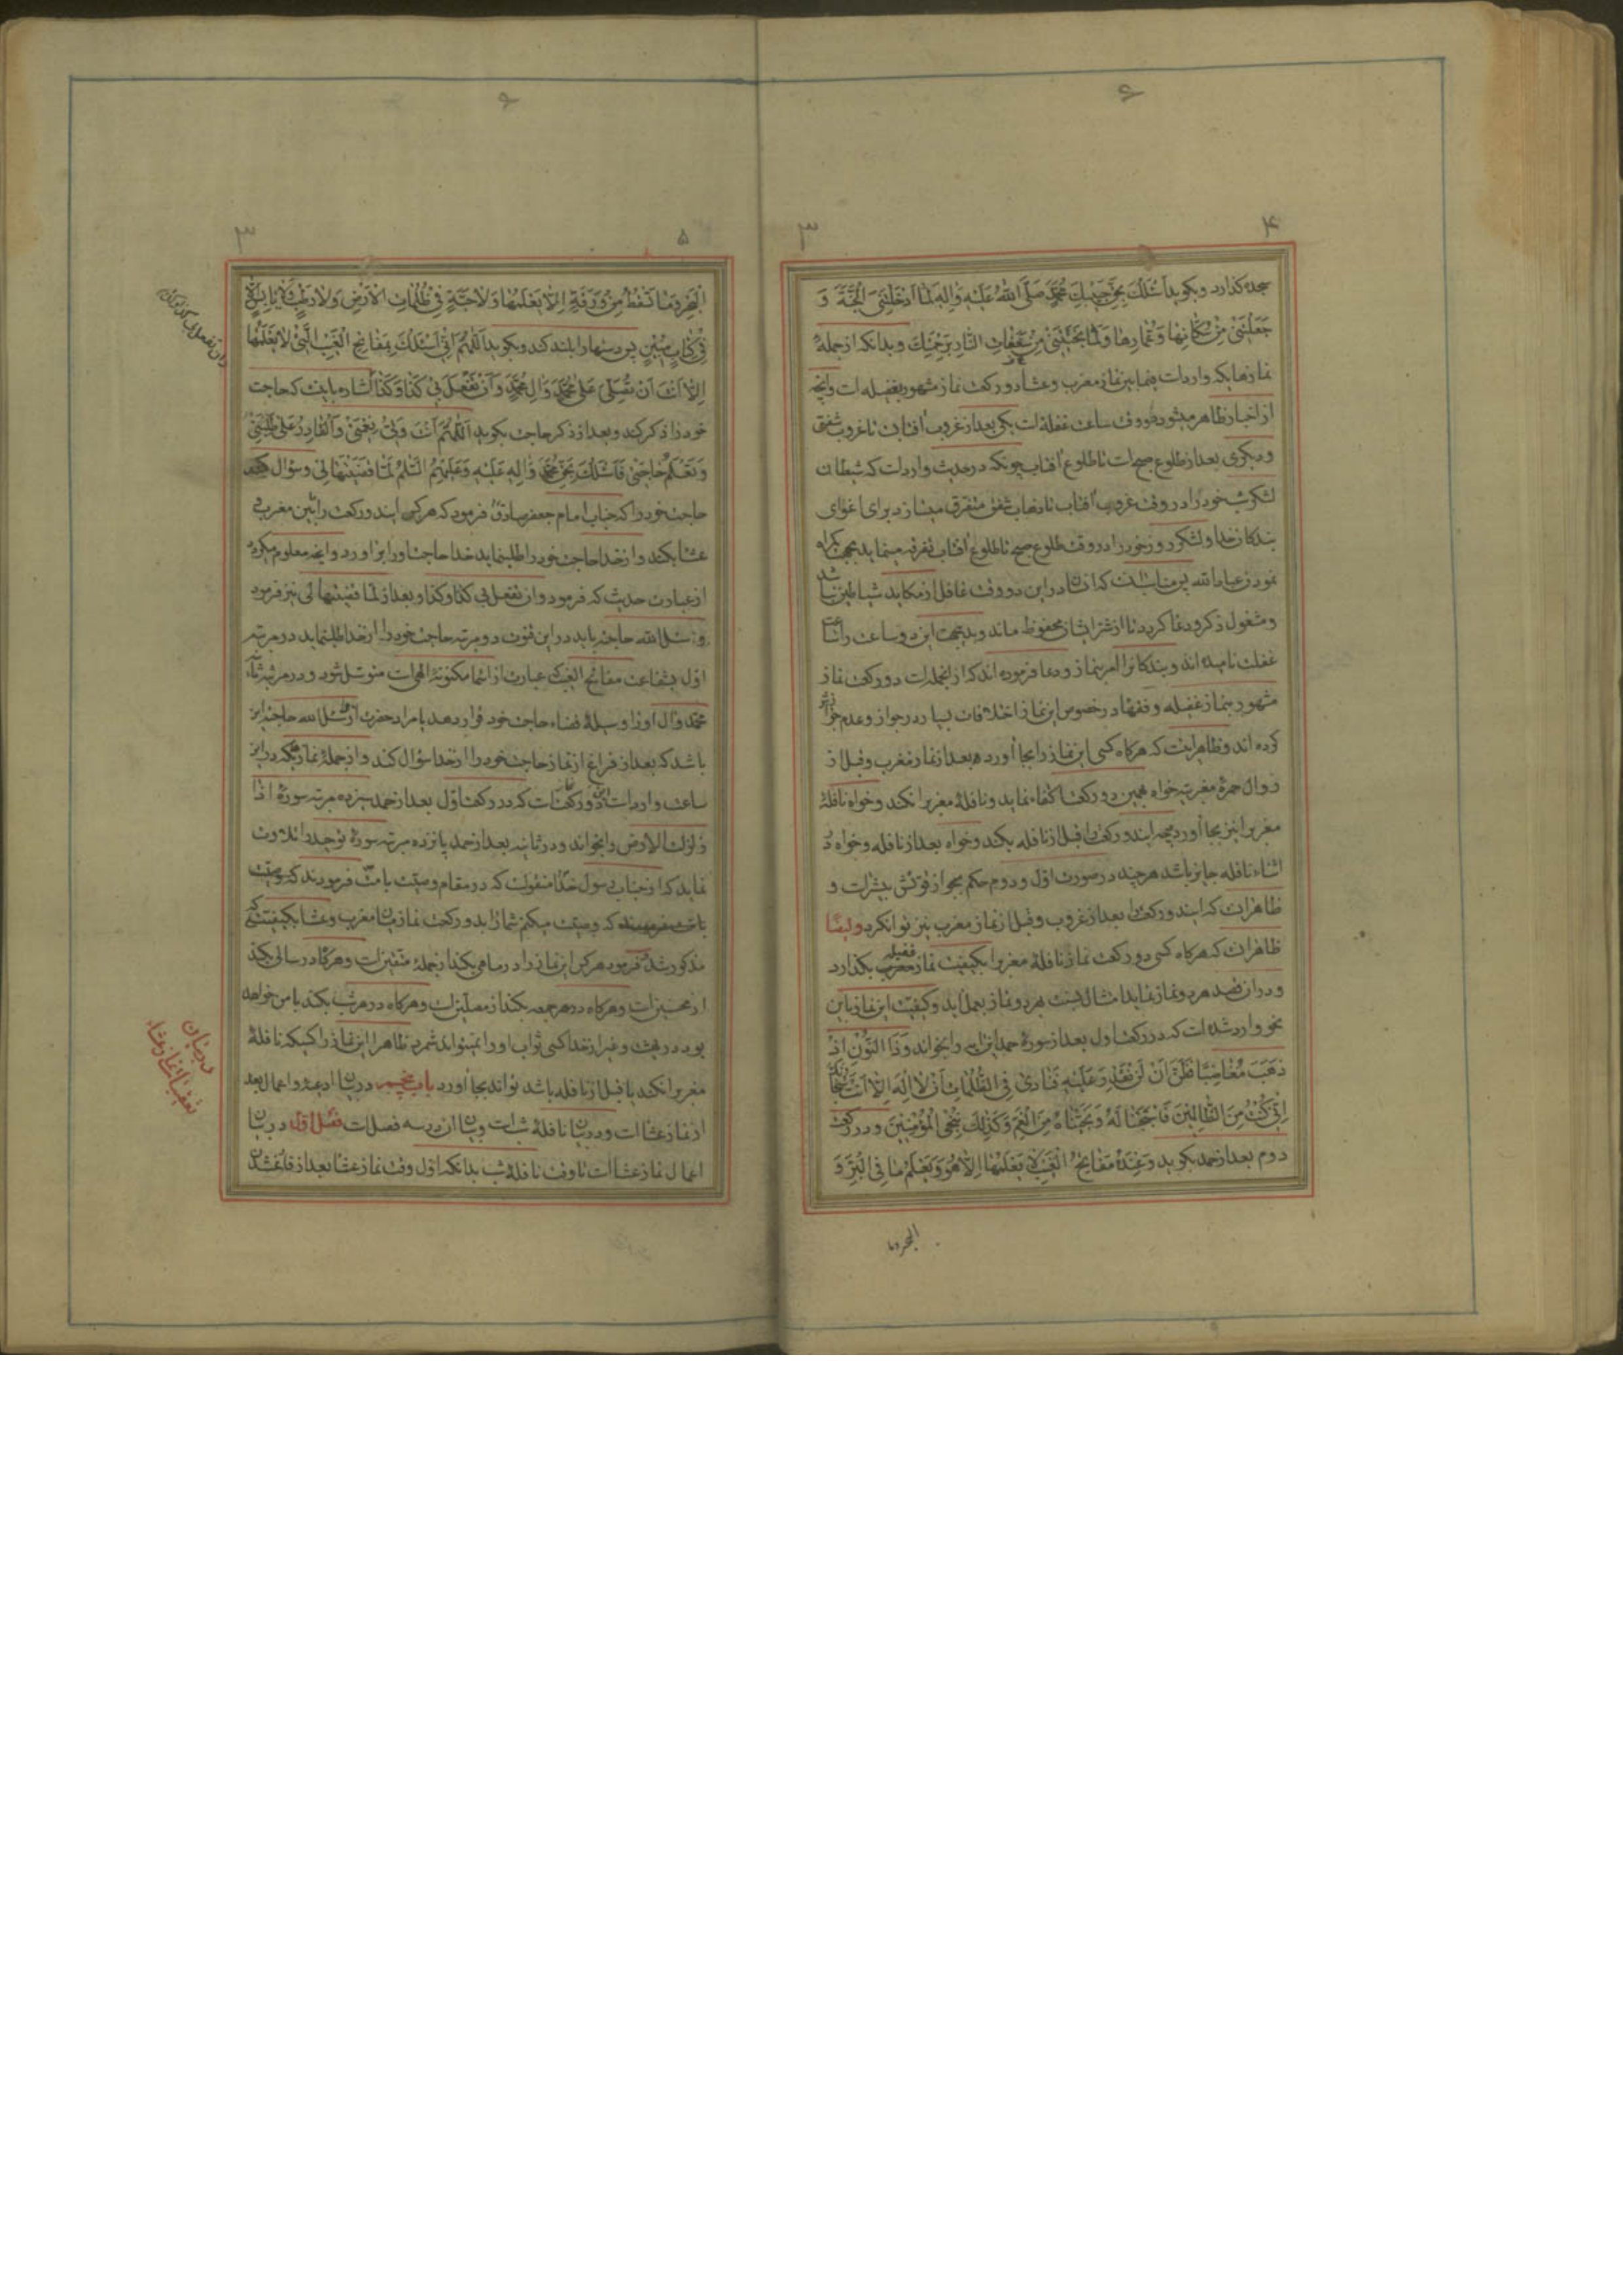 ۴
۳
سجده کذارد و بکوید اَسْئَلُكَ بِحَقِّ حَبِیبِكَ مُحَمَّدٍ صَلَّی اللّٰهُ عَلَیْهِ وَاٰلِهِ لَمَّا اَدْخَلْتَنِیَ الْجَنَّةَ وَ
جَعَلْتَنِی مِنْ سُکّٰانِهٰا وَعُمّٰارِهٰا وَلَمّٰا نَجَّیْتَنِی مِنْ سَفَعٰاتِ النّٰارِ بِرَحْمَتِكَ و بدانکه ازجملهٔ
نمازهایکه وارداست فیمابین نماز مغرب وعشا دورکعت نماز مشهور بغفیله است وانچه
از اخبار ظاهر میشود دووقت ساعت غفلة است یکی بعد از غروب افتاب تا غروب شفق
ودیکری بعد از طلوع صبح است تا طلوع افتاب چونکه درحدیث وارداست که شیطان
لشکر شب خود را در وقت غروب افتاب تا ذهاب شفق متفرق میسازد برای اغوای
بندکان خدا ولشکر روز خود را در وقت طلوع صبح تا طلوع افتاب تفرقه مینماید بجهت کمراه
نمودن عبادالله پس مناسب انست که انسان دراین دووقت غافل از مکاید شیاطین نباشد
ومشغول ذکر ودعا کردد تا از شر ایشان محفوظ ماند وبدینجهت این دوساعت را ساعت
غفلت نامیده اند وبندکانرا امر بنماز ودعا فرموده اند که از انجمله است دورکعت نماز
مشهور بنماز غفیله وفقها درخصوص این نماز اختلافات بسیار در جواز وعدم جواز
کرده اند وظاهر اینست که هرکاه کسی این نماز را بجا اورده بعد از نماز مغرب وقبل از
زوال حمرهٔ مغربیه خواه همین دورکعت اکتفاء نماید ونافلهٔ مغربرا نکند وخواه نافلهٔ
مغربرا نیز بجا اورد وبجهت ایندورکعت را قبل از نافله بکند وخواه بعد از نافله وخواه در
اثناء نافله جایز باشد هرچند درصورت اول ودوم حکم بجواز قوتش بیشتر است و
ظاهر انست که ایندورکعت را بعد از غروب وقبل از نماز مغرب نیز تواند کرد وایضًا
ظاهر انست که هرکاه کسی دورکعت نماز نافلهٔ مغربرا بکیفیت نماز غفیله بکذارد
ودران قصد هردو نماز نماید امتثال نسبت بهردو نماز بعمل اید وکیفیت این نماز باین
نحو وارد شده است که دررکعت اول بعد از سورهٔ حمد این ایه را بخواند وَذَا النُّونِ اِذْ
ذَهَبَ مُغٰاضِبًا فَظَنَّ اَنْ لَنْ نَقْدِرَ عَلَیْهِ فَنٰادیٰ فِی الظُّلُمٰاتِ اَنْ لٰا اِلٰهَ اِلّٰا اَنْتَ سُبْحٰانَكَ
اِنّی کُنْتُ مِنَ الظّٰالِمِینَ فَاسْتَجَبْنٰا لَهُ وَنَجَّیْنٰاهُ مِنَ الْغَمِّ وَکَذٰلِكَ نُنْجِی الْمُؤْمِنِینَ ودررکعت
دوم بعد از حمد بکوید وَعِنْدَهُ مَفٰاتِحُ الْغَیْبِ لٰا یَعْلَمُهٰا اِلّٰا هُوَ وَیَعْلَمُ مٰا فِی الْبَرِّ وَ
البحروما
۵
۳
الْبَحْرِ وَمٰا تَسْقُطُ مِنْ وَرَقَةٍ اِلّٰا یَعْلَمُهٰا وَلٰا حَبَّةٍ فِی ظُلُمٰاتِ الْاَرْضِ وَلٰا رَطْبٍ وَلٰا یٰابِسٍ اِلّٰا
فِی کِتٰابٍ مُبِینٍ پس دستها را بلند کند وبکوید اَللّٰهُمَّ اِنّی اَسْئَلُكَ بِمَفٰاتِحِ الْغَیْبِ الَّتِی لٰا یَعْلَمُهٰا
اِلّٰا اَنْتَ اَنْ تُصَلِّیَ عَلیٰ مُحَمَّدٍ وَاٰلِ مُحَمَّدٍ وَاَنْ تَفْعَلَ بِی کَذٰا وَکَذٰا اشاره باینست که حاجت
خود را ذکر کند وبعد از ذکر حاجت بکوید اَللّٰهُمَّ اَنْتَ وَلِیُّ نِعْمَتِی وَالْقٰادِرُ عَلیٰ طَلِبَتِی
وَتَعْلَمُ حٰاجَتِی فَاَسْئَلُكَ بِحَقِّ مُحَمَّدٍ وَاٰلِهِ عَلَیْهِ وَعَلَیْهِمُ السَّلٰمُ لَمّٰا قَضَیْتَهٰا لِی وسؤال کند
حاجت خود را که جناب امام جعفر صادق فرمود که هرکس ایندورکعت را بین مغرب و
عشا بکند واز خدا حاجت خود را طلبنماید خدا حاجت اورا براورد وانچه معلوم میکردد
از عبارت حدیث که فرمود وان تفعل بی کذا وکذا وبعد از لما قضیتها لی نیز فرمود
وسئل الله حاجته باید دراین قنوت دومرتبه حاجت خود را از خدا طلبنماید درمرتبهٔ
اول بشفاعت مفاتح الغیب که عبارت از اسماء مکنونهٔ الهی است متوسل شود ودرمرتبهٔ ثانیه
محمد وآل اورا وسیلهٔ قضاء حاجت خود قرار دهد یا مراد حضرت از وسئل الله حاجته این
باشد که بعد از فراغ از نماز حاجت خود را از خدا سؤال کند واز جملهٔ نمازیکه دراین
ساعت وارداست دورکعت است که دررکعت اول بعد از حمد سیزده مرتبه سورهٔ اذا
زلزلت الارض را بخواند ودرثانیه بعد از حمد پانزده مرتبه سورهٔ توحید را تلاوت
نماید که از جناب رسول خدا منقولست که درمقام وصیت با امت فرمودند که
وصیت میکنم شما را بدورکعت نماز میان مغرب وعشا بکیفیتی که
مذکور شد فرمود هرکس این نماز را درماهی بکند از جملهٔ متقین است وهرکاه درسالی بکند
از محسنین است وهرکاه درهر جمعه بکند از مصلین است وهرکاه درهرشب بکند بامن خواهد
بود دربهشت وغیر از خدا کسی ثواب اورا نمیتواند شمرد وظاهرا این نماز را کسیکه نافلهٔ
مغربرا نکند یا قبل از نافله باشد تواند بجا اورد باب پنجم دربیان ادعیه واعمال بعد
از نماز عشا است ودربیان نافلهٔ شب است وبیان ان درسه فصل است فصل اول دربیان
اعمال نماز عشا است تا وقت نافلهٔ شب بدانکه اول وقت نماز عشا بعد از فارغ شدن
وان تفعل بی کذا وکذا
در بیان
تعقیب نماز عشاء